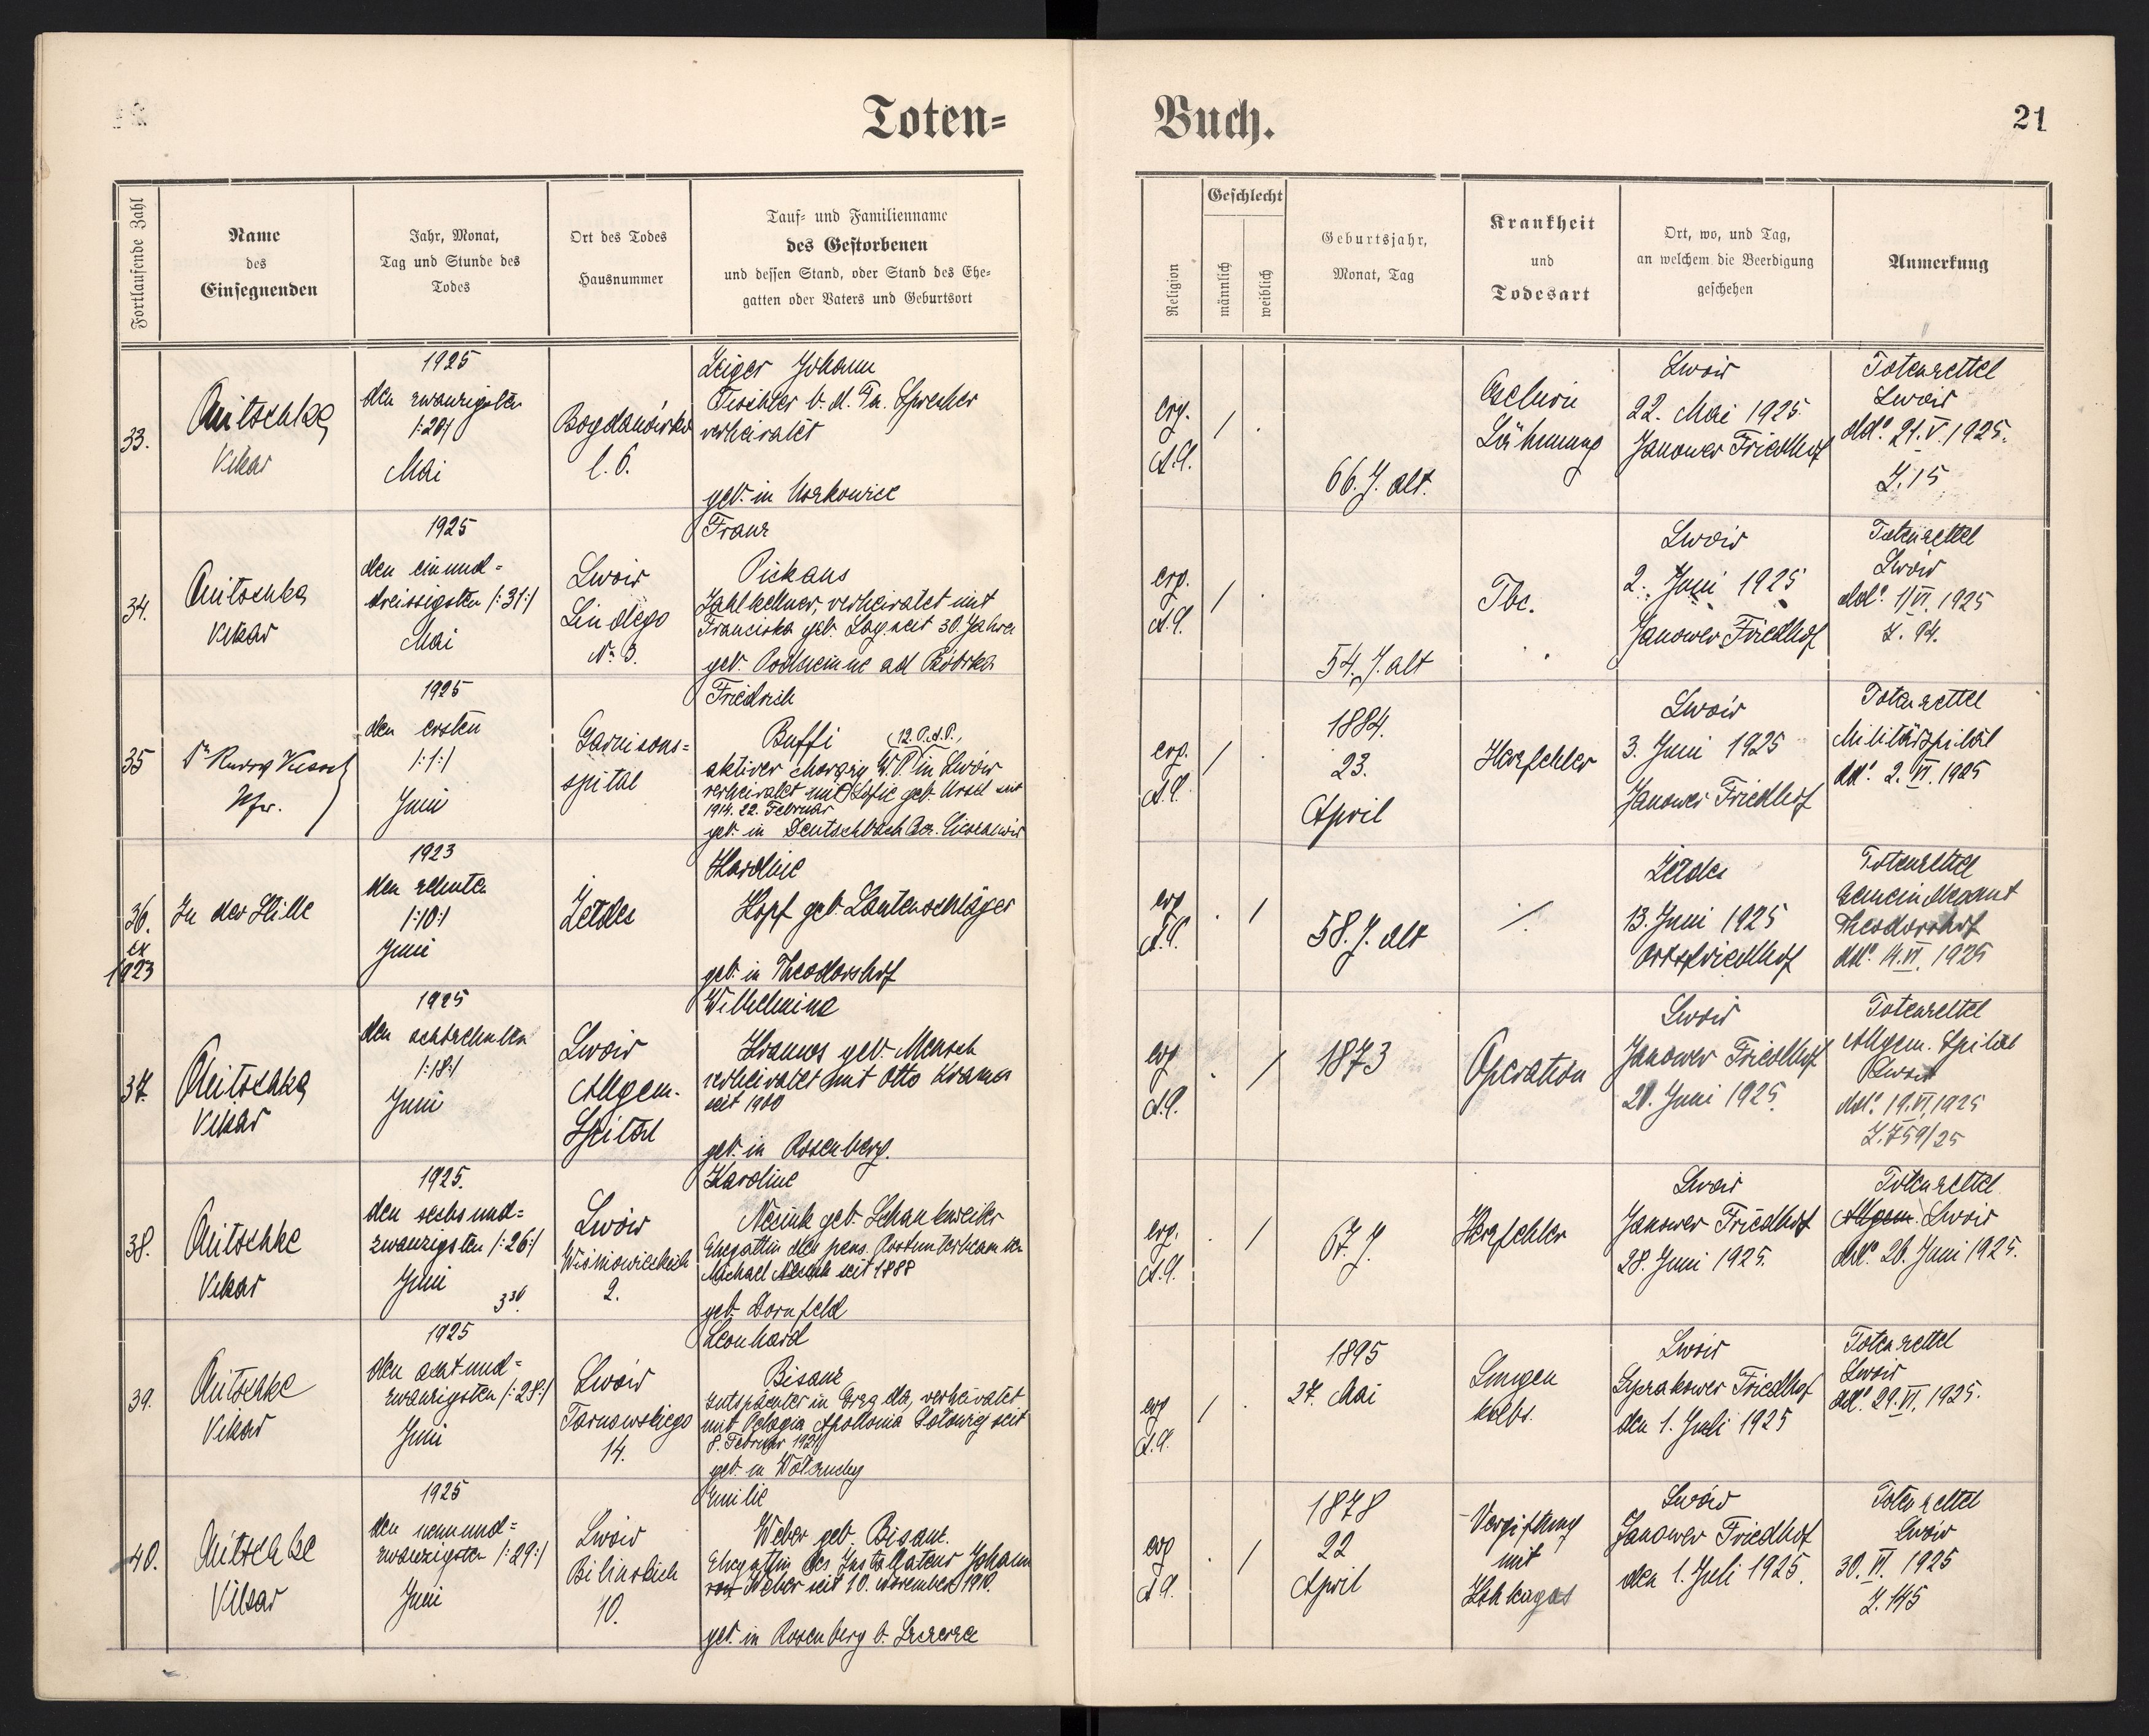 Toten=
Buch.
21
Fortlaufende Zahl
Name
des
Einsegnenden
Jahr, Monat,
Tag und Stunde des
Todes
Ort des Todes
Hausnummer
Tauf= und Familienname
des Gestorbenen
und dessen Stand, oder Stand des Ehe=
gatten oder Vaters und Geburtsort
Religion
Geschlecht
männlich
weiblich
Geburtsjahr,
Monat, Tag
Krankheit
und
Todesart
Ort, wo, und Tag,
an welchem die Beerdigung
geschehen
Anmerkung
33.
Vikar
1925
den zwanzigsten
/:20:/
Mai
Bogdanówka
l. 6.
Zeiger Johann
Tischler b. d. Fa. Sprecher
verheiratet
geb. in
evg.
A.C.
/ .
66. J. alt.
Lähmung
Lwów
22. Mai 1925
Janower Friedhof
Totenzettel
Lwów
dd.º 21.V.1925.
Z. 15
34.
Vikar
1925
den einund=
dreissigsten /:31:/
Mai
Lwów
Lindego
Nº 3.
Franz
Pickaus
Zahlkellner, verheiratet mit
Franciska geb. seit 30. Jahren
geb. ad Bóbrka
evg.
A.C.
/ .
54. J. alt
Tbc.
Lwów
2. Juni 1925
Janower Friedhof
Totenzettel
Lwów
dd.º 1/VI. 1925
Z. 94.
35
Pfr.
1925
den ersten
/:1:/
Juni
Garnisons=
spital
Friedrich
Buffi
aktiver W.P. in Lwów
verheiratet mit Sofie geb. seit
1914. 22. Februar
geb. in Deutschbach
evg.
A.C.
/ .
1884.
23.
April
Herzfehler
Lwów
3. Juni 1925
Janower Friedhof
Totenzettel
Militärspital
dd.º 2. VI. 1925
36.
ex
1923
In der Stille
1923
den zehnten
/:10:/
Juni
Karoline
Kopf geb. Lautenschläger
geb. in Theodorshof
evg
A.C.
. /
58. J. alt
./.
13. Juni 1925
Ortsfriedhof
Totenzettel
Theodorshof
dd.º 14. VI. 1925
37.
Vikar
1925
den achtzehnten
/:18:/
Juni
Lwów
Allgem.
Spital
Wilhelmine
Kramer geb. Mensch
verheiratet mit Otto Kramer
seit 1900
geb. in Rosenberg.
evg
A.C.
. /
1873
Operation
Lwów
Janower Friedhof
20. Juni 1925.
Totenzettel
Allgem. Spital
Lwów
dd.º 19.VI.1925
Z. 759/25
38.
Vikar
1925.
den sechsund=
zwanzigsten /:26:/
Juni
3³⁰.
Lwów
2.
Karoline
geb. Schankweiler
Ehegattin des pens.
Michael seit 1888
geb. Dornfeld
evg.
A.C.
. /
67. J.
Herzfehler
Lwów
Janower Friedhof
28. Juni 1925.
Totenzettel
Allgem. Lwów
dd.º 26. Juni 1925.
39.
Vikar
1925
den achtund=
zwanzigsten /:28:/
Juni
Lwów
Tarnowskiego
14.
Leonhard
Bisanz
Gutspächter in verheiratet
mit Pelagia Apollonia seit
8. Februar
geb. in
evg
A.C.
/ .
1895
27. Mai
Lungen
Lwów
Friedhof
den 1. Juli 1925
Totenzettel
Lwów
dd.º 29.VI.1925.
40.
Vikar
1925
den neunund=
zwanzigsten /:29:/
Juni
Lwów
10.
Emilie
Weber geb. Bisanz.
Ehegattin des Installateurs Johann
Weber seit 10. November 1910.
geb. in Rosenberg b.
evg
A.C.
. /
1878
22
April
Vergiftung
mit
Lwów
Janower Friedhof
den 1. Juli 1925.
Totenzettel
Lwów
30. VI. 1925
Z. 145